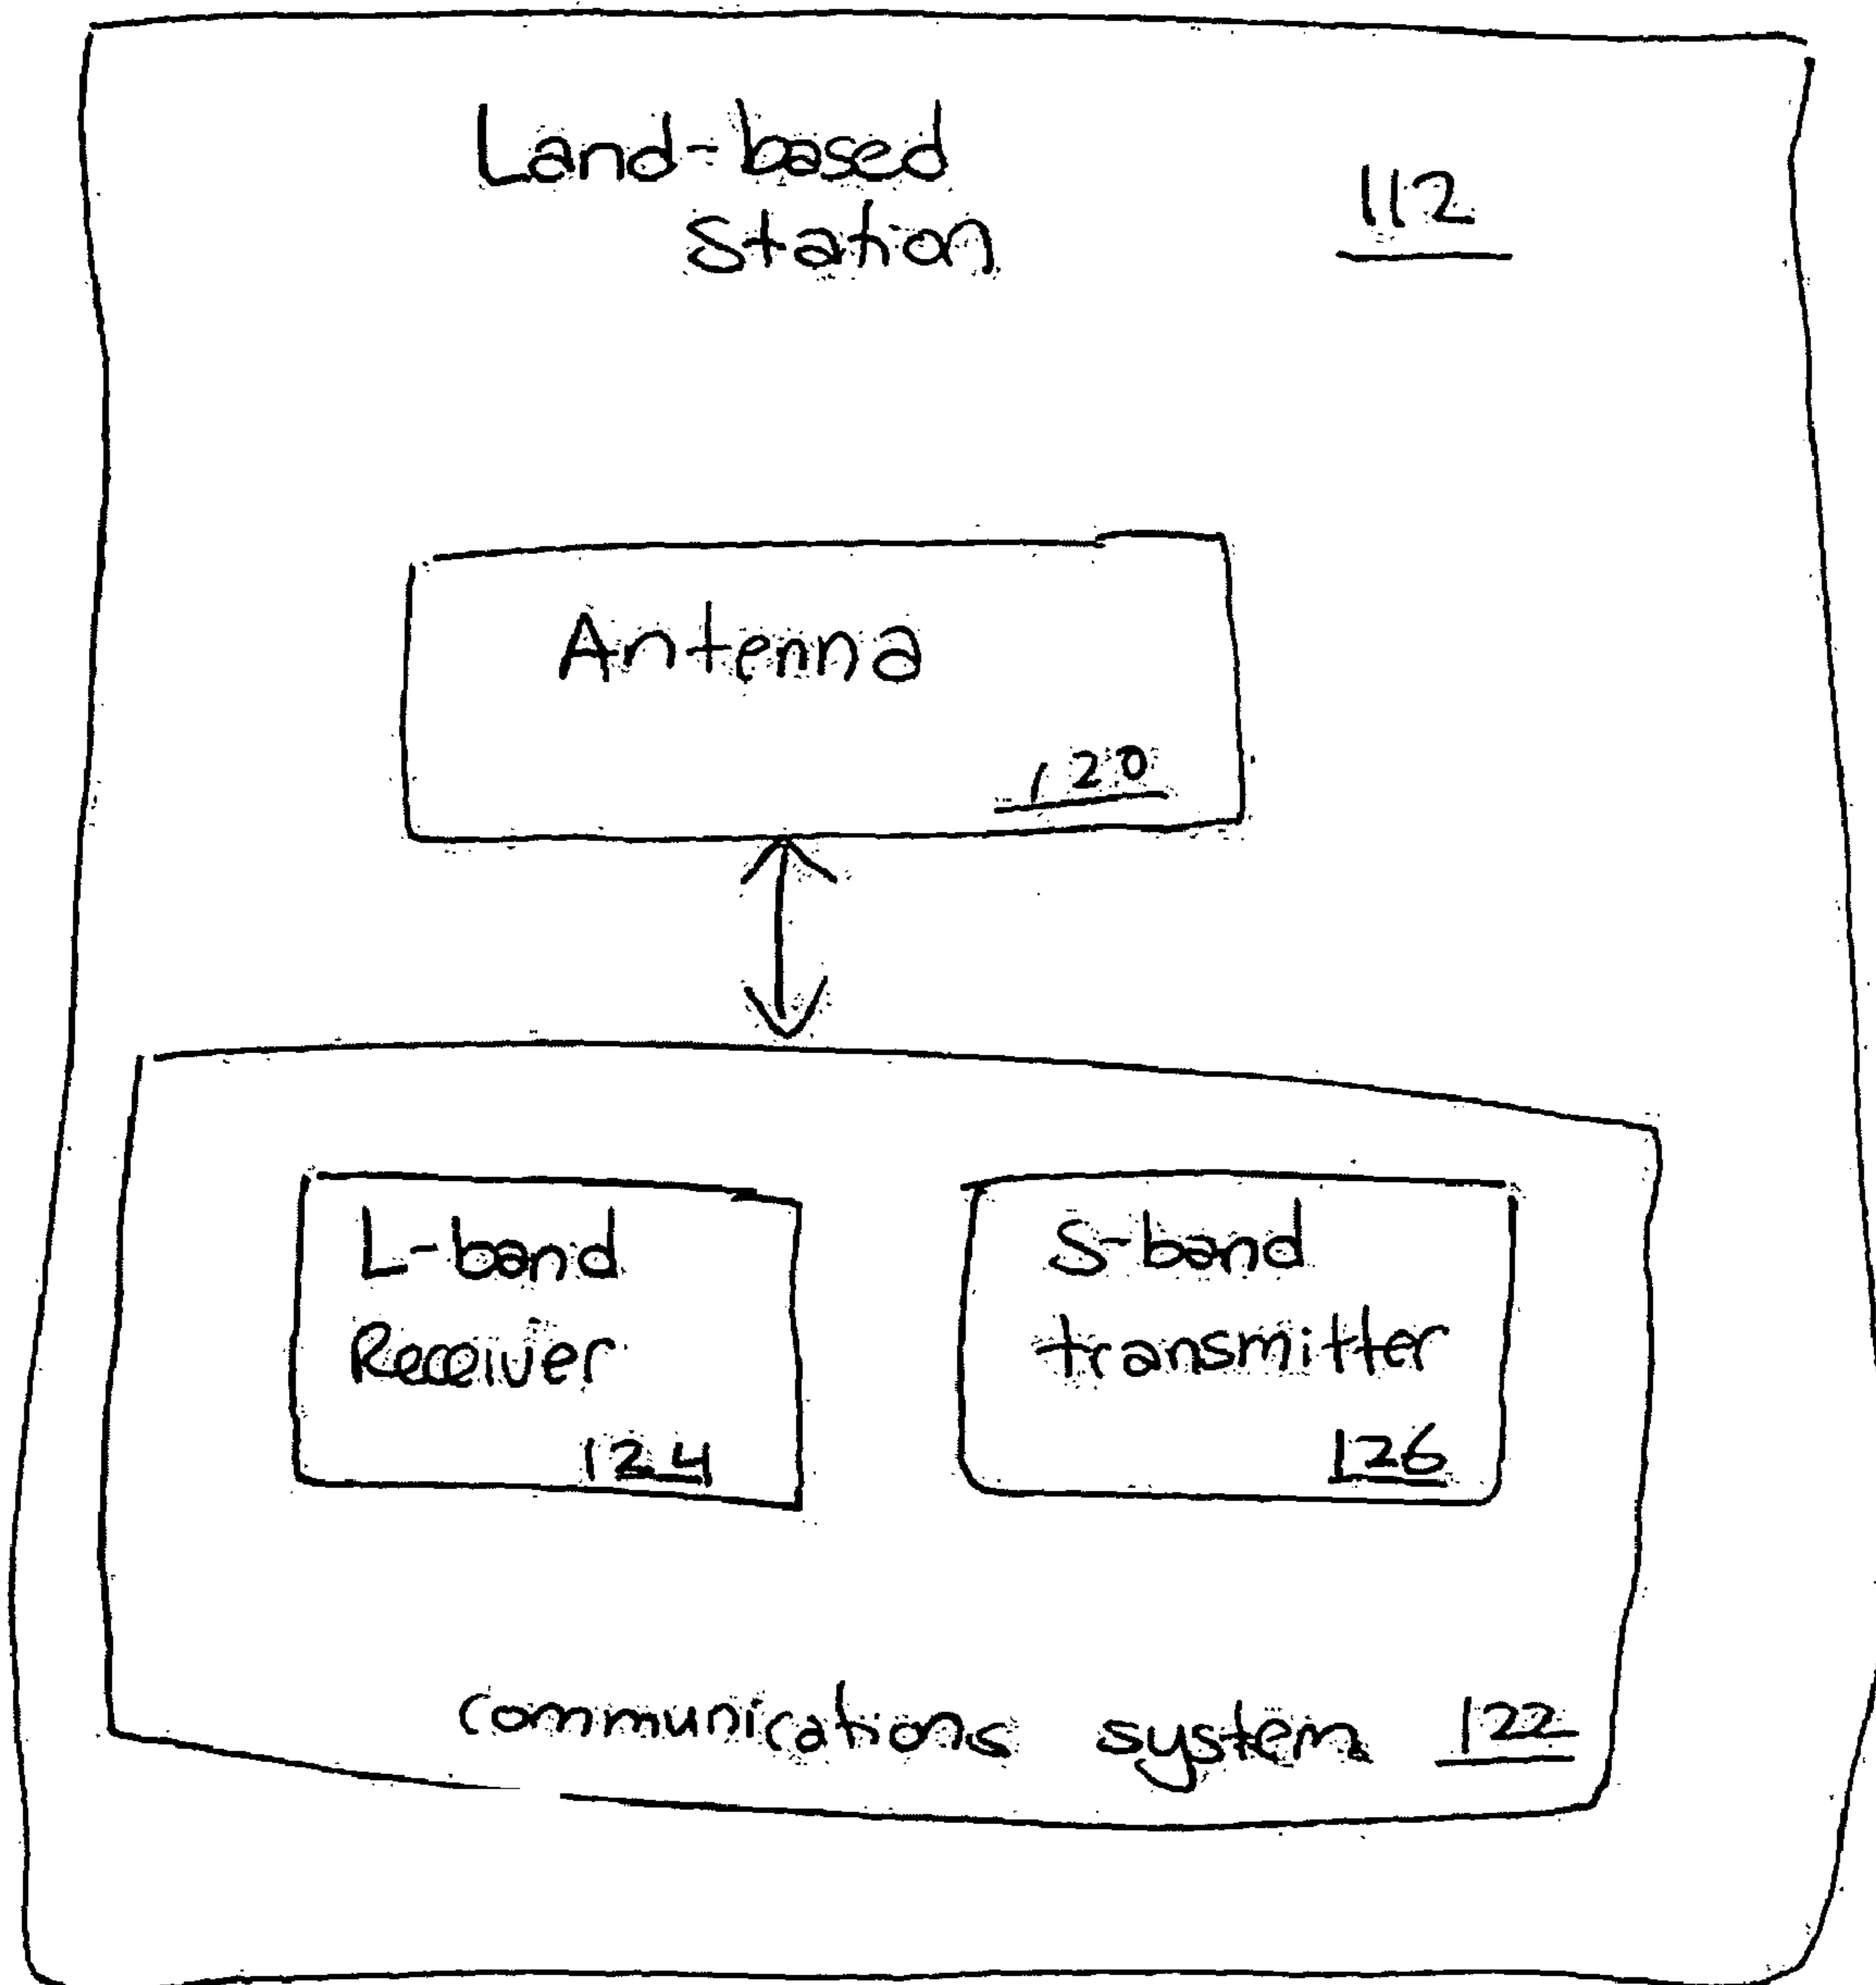 Land-based
Station
112
Antenna
120
L-band
Receiver
124
S-band
transmitter
126
communications system 122